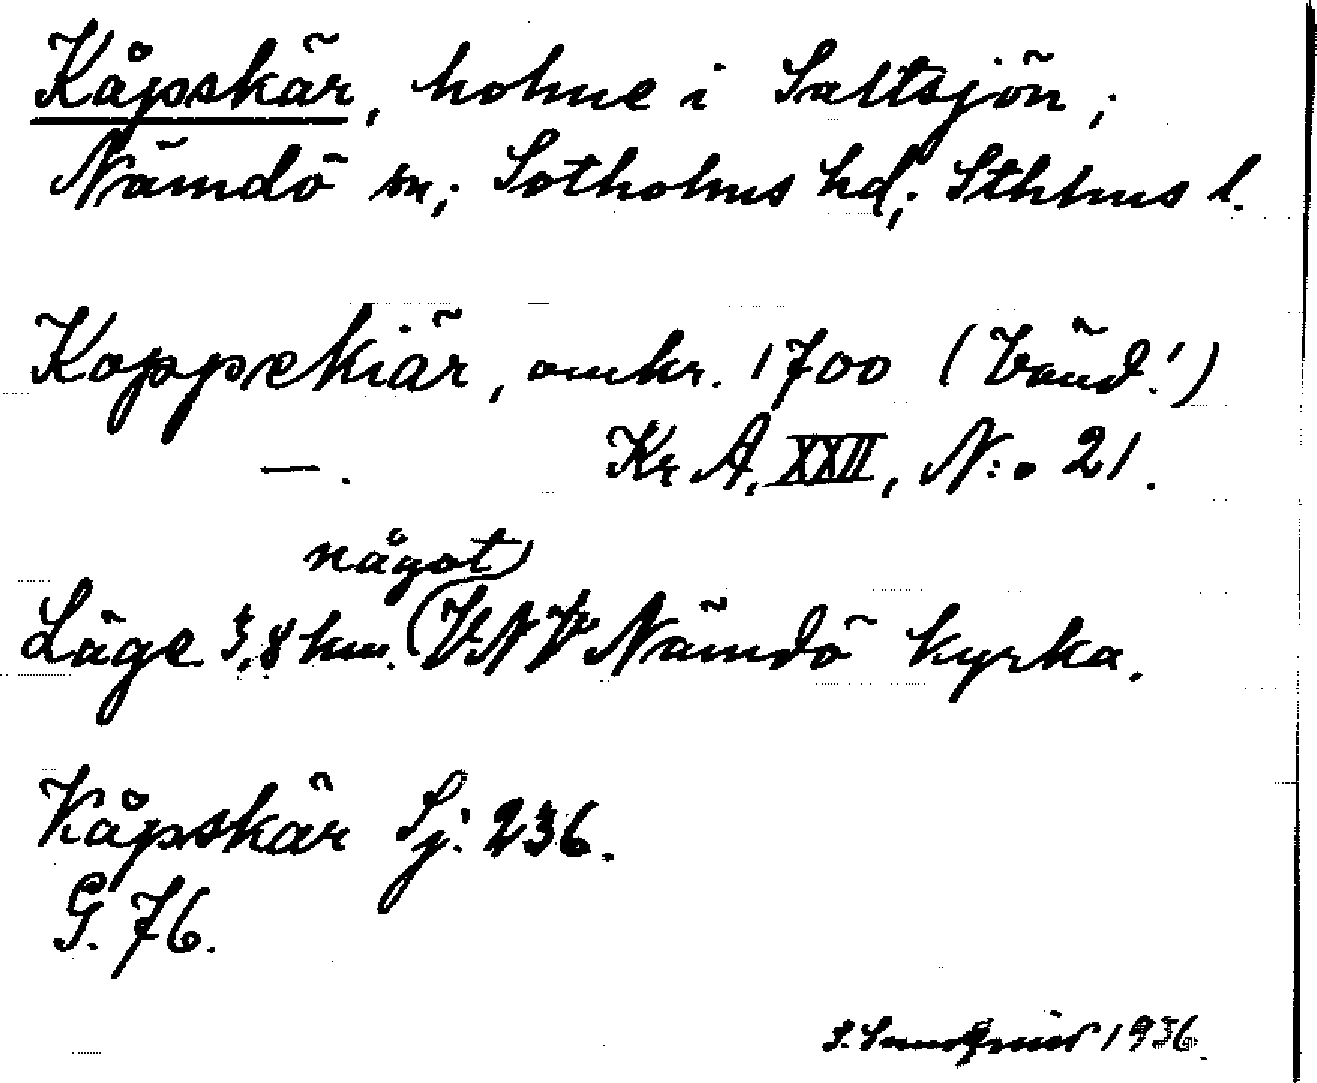 Kåpskär, holme i Saltsjön;
Nämdö sn; Sotholms hd; Sthlms l.
Koppekiär, omkr. 1700 (Vänd!)
—. Kr A, XXII, N:o 21.
något
Läge 3,8 km. VNV Nämdö kyrka.
Kåpskär Sj. 236.
G. 76.
S. Sundqvist 1936.